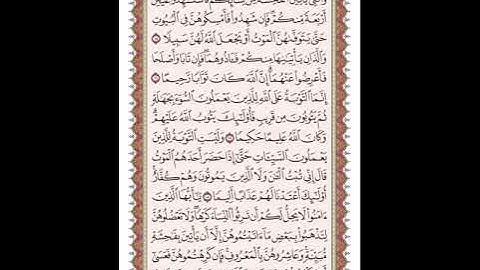 وَٱلَّٰتِي يَأۡتِينَ ٱلۡفَٰحِشَةَ مِن نِّسَآئِكُمۡ فَٱسۡتَشۡهِدُواْ عَلَيۡهِنَّ
أَرۡبَعَةٗ مِّنكُمۡۖ فَإِن شَهِدُواْ فَأَمۡسِكُوهُنَّ فِي ٱلۡبُيُوتِ
حَتَّىٰ يَتَوَفَّىٰهُنَّ ٱلۡمَوۡتُ أَوۡ يَجۡعَلَ ٱللَّهُ لَهُنَّ سَبِيلٗا
وَٱلَّذَانِ يَأۡتِيَٰنِهَا مِنكُمۡ فَـَٔاذُوهُمَاۖ فَإِن تَابَا وَأَصۡلَحَا
فَأَعۡرِضُواْ عَنۡهُمَآۗ إِنَّ ٱللَّهَ كَانَ تَوَّابٗا رَّحِيمًا
إِنَّمَا ٱلتَّوۡبَةُ عَلَى ٱللَّهِ لِلَّذِينَ يَعۡمَلُونَ ٱلسُّوٓءَ بِجَهَٰلَةٖ
ثُمَّ يَتُوبُونَ مِن قَرِيبٖ فَأُوْلَٰٓئِكَ يَتُوبُ ٱللَّهُ عَلَيۡهِمۡۗ
وَكَانَ ٱللَّهُ عَلِيمًا حَكِيمٗا وَلَيۡسَتِ ٱلتَّوۡبَةُ لِلَّذِينَ
يَعۡمَلُونَ ٱلسَّيِّـَٔاتِ حَتَّىٰٓ إِذَا حَضَرَ أَحَدَهُمُ ٱلۡمَوۡتُ
قَالَ إِنِّي تُبۡتُ ٱلۡـَٰٔنَ وَلَا ٱلَّذِينَ يَمُوتُونَ وَهُمۡ كُفَّارٌۚ
أُوْلَٰٓئِكَ أَعۡتَدۡنَا لَهُمۡ عَذَابًا أَلِيمٗا يَٰٓأَيُّهَا ٱلَّذِينَ
ءَامَنُواْ لَا يَحِلُّ لَكُمۡ أَن تَرِثُواْ ٱلنِّسَآءَ كَرۡهٗاۖ وَلَا تَعۡضُلُوهُنَّ
لِتَذۡهَبُواْ بِبَعۡضِ مَآ ءَاتَيۡتُمُوهُنَّ إِلَّآ أَن يَأۡتِينَ بِفَٰحِشَةٖ
مُّبَيِّنَةٖۚ وَعَاشِرُوهُنَّ بِٱلۡمَعۡرُوفِۚ فَإِن كَرِهۡتُمُوهُنَّ فَعَسَىٰٓ